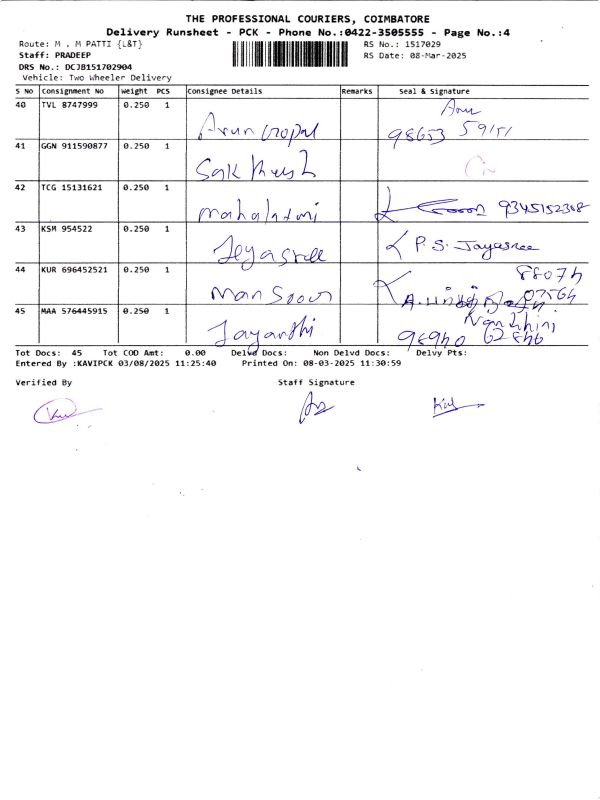 THE PROFESSIONAL COURIERS, COIMBATORE
Delivery Runsheet - PCK - Phone No.:0422-3505555 - Page No.:4
Route: M . M PATTI {L&T} RS No.: 1517029
Staff: PRADEEP RS Date: 08-Mar-2025
DRS No.: DCJB151702904
Vehicle: Two Wheeler Delivery
S NO Consignment No Weight PCS Consignee Details Remarks Seal & Signature
40 TVL 8747999 0.250 1 Arun Gopal Arun
98653 59151
41 GGN 911590877 0.250 1
42 TCG 15131621 0.250 1 Mahalaxmi 9345152308
43 KSM 954522 0.250 1 Jeyasree P. S. Jayasree
44 KUR 696452521 0.250 1 Mansoor 88074
07564
45 MAA 576445915 0.250 1 Jayanthi Nandhini
98940 62846
Tot Docs: 45 Tot COD Amt: 0.00 Delvd Docs: Non Delvd Docs: Delvy Pts:
Entered By :KAVIPCK 03/08/2025 11:25:40 Printed On: 08-03-2025 11:30:59
Verified By Staff Signature